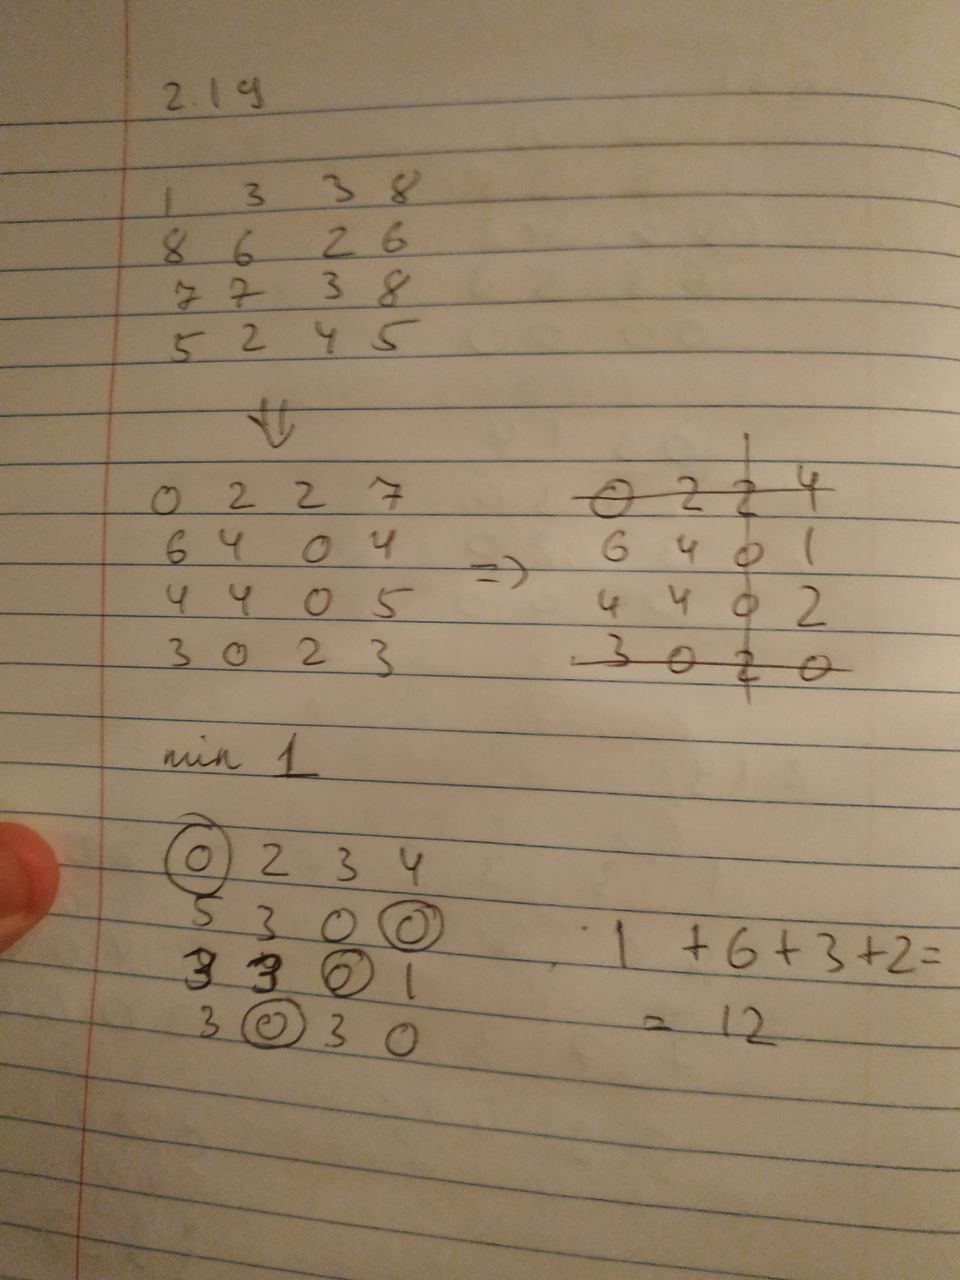 2.19
1 3 3 8
8 6 2 6
7 7 3 8
5 2 4 5
⇓
0 2 2 7
6 4 0 4
4 4 0 5
3 0 2 3
=>
0 2 2 4
6 4 0 1
4 4 0 2
3 0 2 0
min 1
0 2 3 4
5 3 0 0
3 3 0 1
3 0 3 0
1 + 6 + 3 + 2 =
= 12